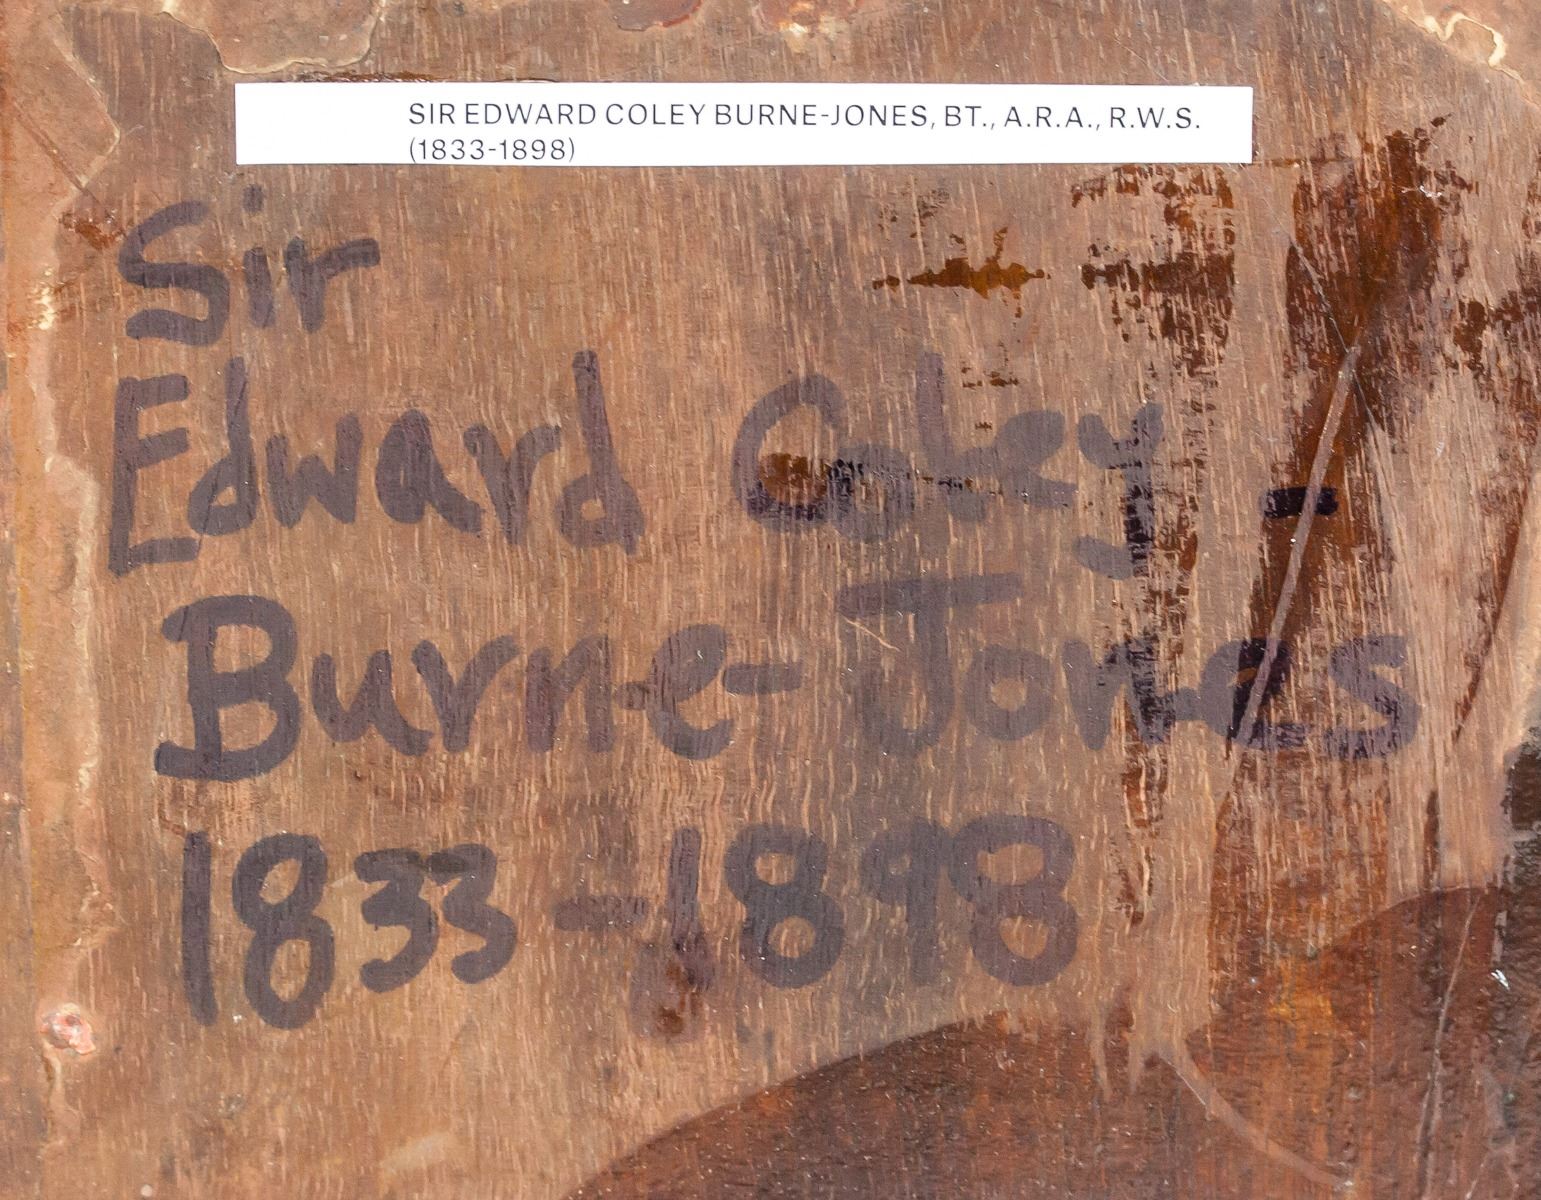 SIR EDWARD COLEY BURNE-JONES, BT., A.R.A., R.W.S.
(1833-1898)
Sir
Edward Coley -
Burne-Jones
1833-1898